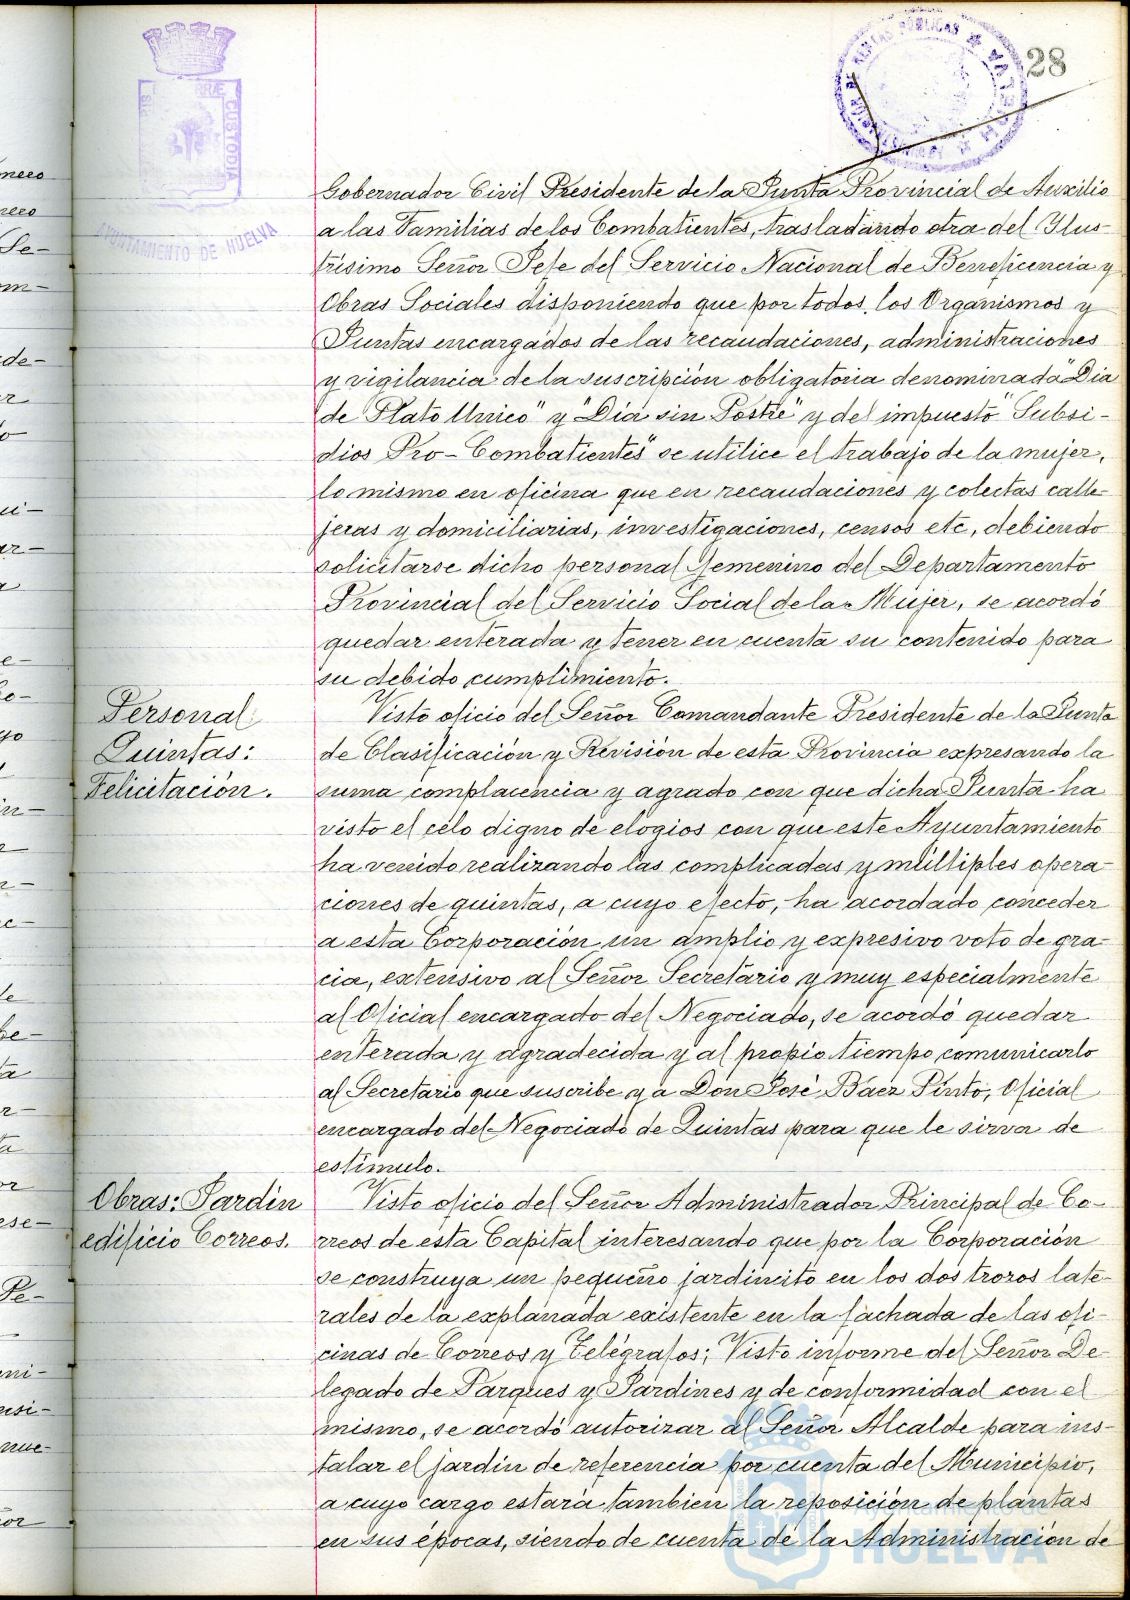 28
AYUNTAMIENTO DE HUELVA
CUSTODIA
Gobernador Civil Presidente de la Junta Provincial de Auxilio
a las Familias de los Combatientes, trasladando otra del Ilus-
trísimo Señor Jefe del Servicio Nacional de Beneficencia y
Obras Sociales disponiendo que por todos los Organismos y
Juntas encargados de las recaudaciones, administraciones
y vigilancia de la suscripción obligatoria denominada "Dia
de Plato Unico" y "Dia sin Postre" y del impuesto "Subsi-
dios Pro-Combatientes" se utilice el trabajo de la mujer,
lo mismo en oficina que en recaudaciones y colectas calle-
jeras y domiciliarias, investigaciones, censos etc, debiendo
solicitarse dicho personal femenino del Departamento
Provincial del Servicio Social de la Mujer, se acordó
quedar enterada y tener en cuenta su contenido para
su debido cumplimiento.
Personal
Quintas:
Felicitación.
Visto oficio del Señor Comandante Presidente de la Junta
de Clasificación y Revisión de esta Provincia expresando la
suma complacencia y agrado con que dicha Junta ha
visto el celo digno de elogios con que este Ayuntamiento
ha venido realizando las complicadas y múltiples opera-
ciones de quintas, a cuyo efecto, ha acordado conceder
a esta Corporación un amplio y expresivo voto de gra-
cia, extensivo al Señor Secretario y muy especialmente
al Oficial encargado del Negociado, se acordó quedar
enterada y agradecida y al propio tiempo comunicarlo
al Secretario que suscribe y a Don José Baez Pinto, Oficial
encargado del Negociado de Quintas para que le sirva de
estímulo.
Obras: Jardin
edificio Correos.
Visto oficio del Señor Administrador Principal de Co-
rreos de esta Capital interesando que por la Corporación
se construya un pequeño jardincito en los dos trozos late-
rales de la explanada existente en la fachada de las ofi-
cinas de Correos y Telégrafos; Visto informe del Señor De-
legado de Parques y Jardines y de conformidad con el
mismo, se acordó autorizar al Señor Alcalde para ins-
talar el jardin de referencia por cuenta del Municipio,
a cuyo cargo estará tambien la reposición de plantas
en sus épocas, siendo de cuenta de la Administración de
Ayuntamiento de
HUELVA